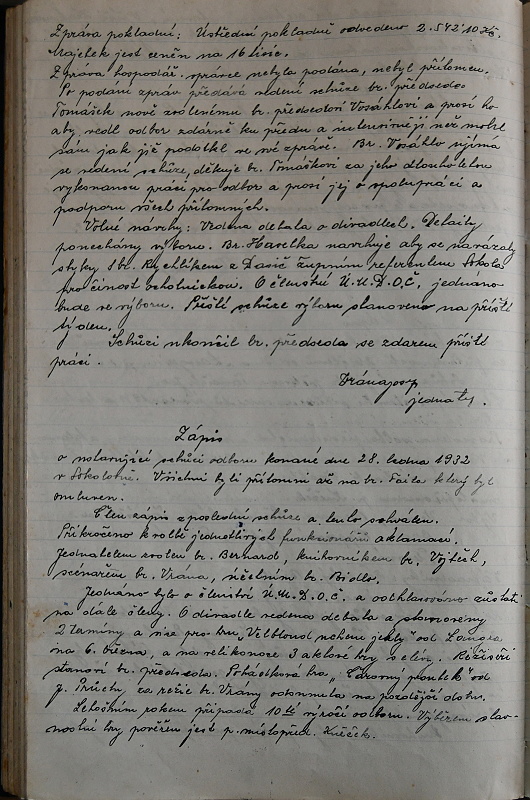 Zpráva pokladní: Ústřední pokladně odvedeno 2.542´10 Kč.
Majetek jest ceněn na 16 tisíc.
Zpráva hospodář. správce nebyla podána, nebyl přítomen.
Po podání zpráv předává vedení schůze br. předseda
Tomášek nově zvolenému br. předsedovi Vosáhlovi a prosí ho
aby vedl odbor zdárně ku předu a intensivněji než mohl
sám jak již podotkl ve své zprávě. Br. Vosáhlo ujímá
se vedení schůze, děkuje br. Tomáškovi za jeho dlouholetou
vykonanou práci pro odbor a prosí jej o spolupráci a
podporu všech přítomných.
Volné návrhy: Vedena debata o divadlech. Detaily
ponechány výboru. Br. Havelka navrhuje aby se navázaly
styky s br. Rychlíkem z Dašic župním referentem Sokola
pro činnost ochotnickou. O členství Ú.M.D.O.Č. jednáno
bude ve výboru. Příští schůze výboru stanovena na příští
týden.
Schůzi ukončil br. předseda se zdarem příští
práci.
Vránajosef
jednatel.
Zápis
o ustavující schůzi odboru konané dne 28. ledna 1932
v Sokolovně. Všichni byli přítomni až na br. Fajla který byl
omluven.
Čten zápis z poslední schůze a tento schválen.
Přikročeno k volbě jednotlivých funkcionářů aklamací.
Jednatelem zvolen br. Bernard, knihovníkem br. Vojtěch,
scénařem br. Vrána, účetním br. Bidlo.
Jednáno bylo o členství Ú.M.D.O.Č. a odhlasováno zůstati
na dále členy. O divadle vedena debata a stanoveny
2 termíny a sice pro hru „Velbloud uchem jehly" od Langra
na 6. března, a na velikonoce 3 aktové hry
stanoví br. předseda. Pohádková hra „Čarovný proutek" od
J. Průchy, za režie br. Vrány odsunuta na pozdější dobu.
Letošním rokem připadá 10tí výročí odboru. Výběrem slav-
nostní hry pověřen jest p. místopřed. Křeček.